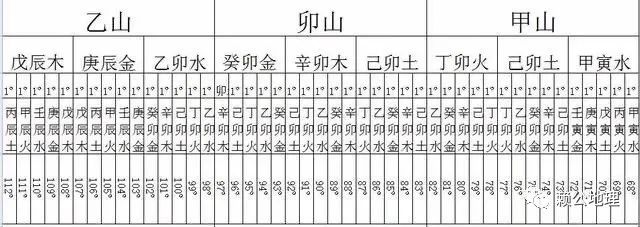 乙山 卯山 甲山
戊辰木 庚辰金 乙卯水 癸卯金 辛卯木 己卯土 丁卯火 己卯土 甲寅水
1° 1° 1° 1° 1° 1° 1° 1° 1° 1° 1° 1° 1° 1° 1° 卯 1° 1° 1° 1° 1° 1° 1° 1° 1° 1° 1° 1° 1° 1° 1° 1° 1° 1° 1° 1° 1° 1° 1° 1° 1° 1° 1° 1° 1°
丙辰土 甲辰火 壬辰水 庚辰金 戊辰木 戊辰木 丙辰土 甲辰火 壬辰水 庚辰金 癸卯金 辛卯木 己卯土 丁卯火 乙卯水 辛卯木 己卯土 丁卯火 乙卯水 癸卯金 癸卯金 辛卯木 己卯土 丁卯火 乙卯水 己卯土 丁卯火 乙卯水 癸卯金 辛卯木 乙卯水 癸卯金 辛卯木 己卯土 丁卯火 丁卯火 乙卯水 癸卯金 辛卯木 己卯土 壬寅金 庚寅木 戊寅土 丙寅火 甲寅水
112° 111° 110° 109° 108° 107° 106° 105° 104° 103° 102° 101° 100° 99° 98° 97° 96° 95° 94° 93° 92° 91° 90° 89° 88° 87° 86° 85° 84° 83° 82° 81° 80° 79° 78° 77° 76° 75° 74° 73° 72° 71° 70° 69° 68°
赖公地理